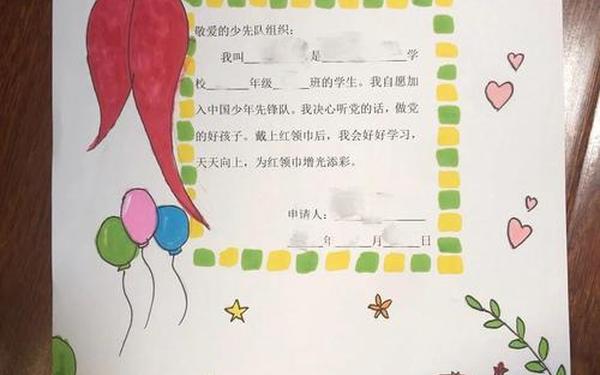 敬爱的少先队组织：
我叫 是 学
校 年级 班的学生。我自愿加
入中国少年先锋队。我决心听党的话，做党
的好孩子。戴上红领巾后，我会好好学习，
天天向上，为红领巾增光添彩。
申请人：
年 月 日